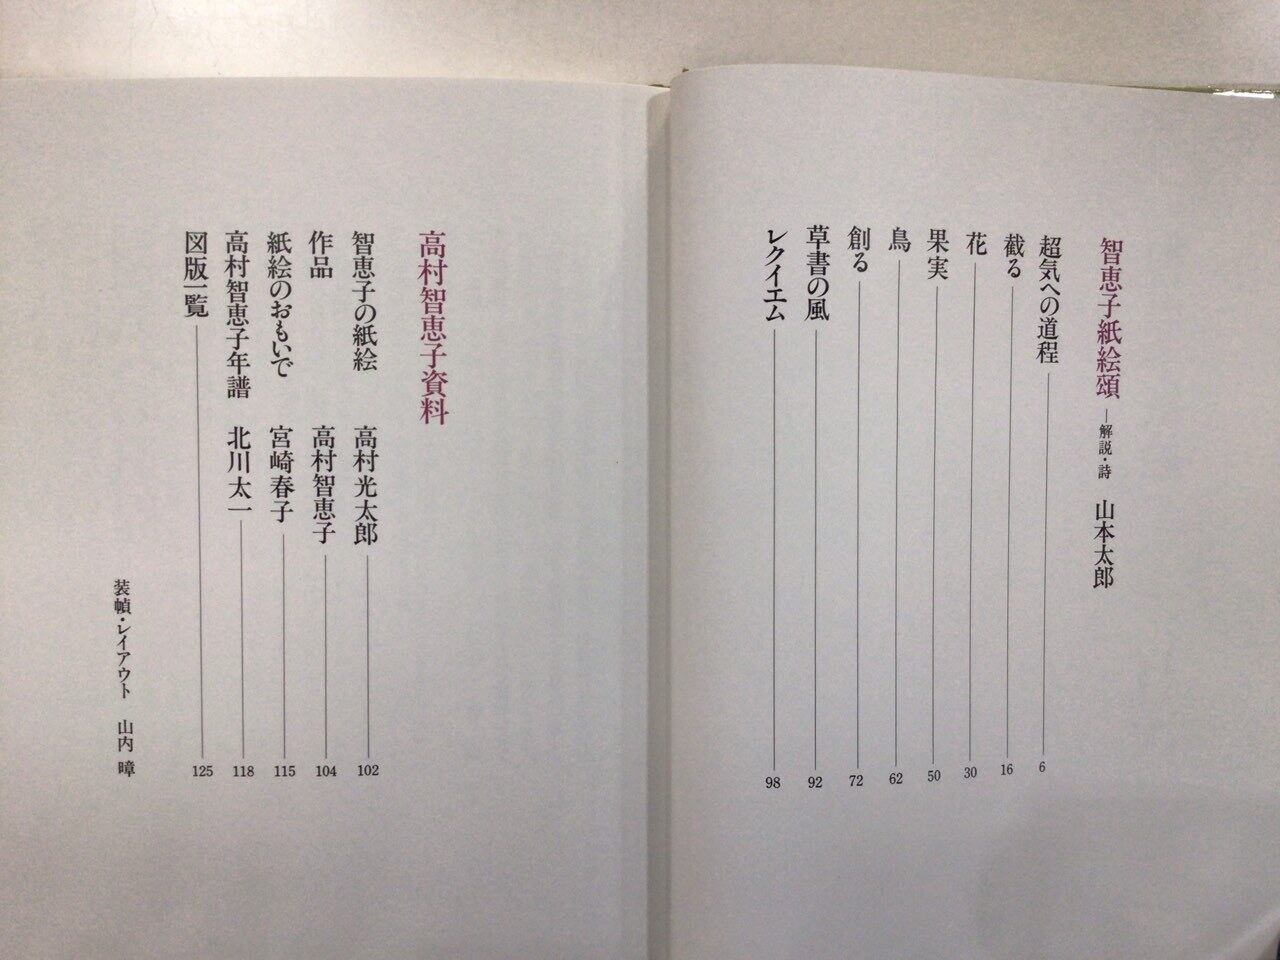 智恵子紙絵頌 ―解説・詩 山本太郎
超気への道程 6
截る 16
花 30
果実 50
鳥 62
創る 72
草書の風 92
レクイエム 98
高村智恵子資料
智恵子の紙絵 高村光太郎 102
作品 高村智恵子 104
紙絵のおもいで 宮崎春子 115
高村智恵子年譜 北川太一 118
図版一覧 125
装幀・レイアウト 山内 暲